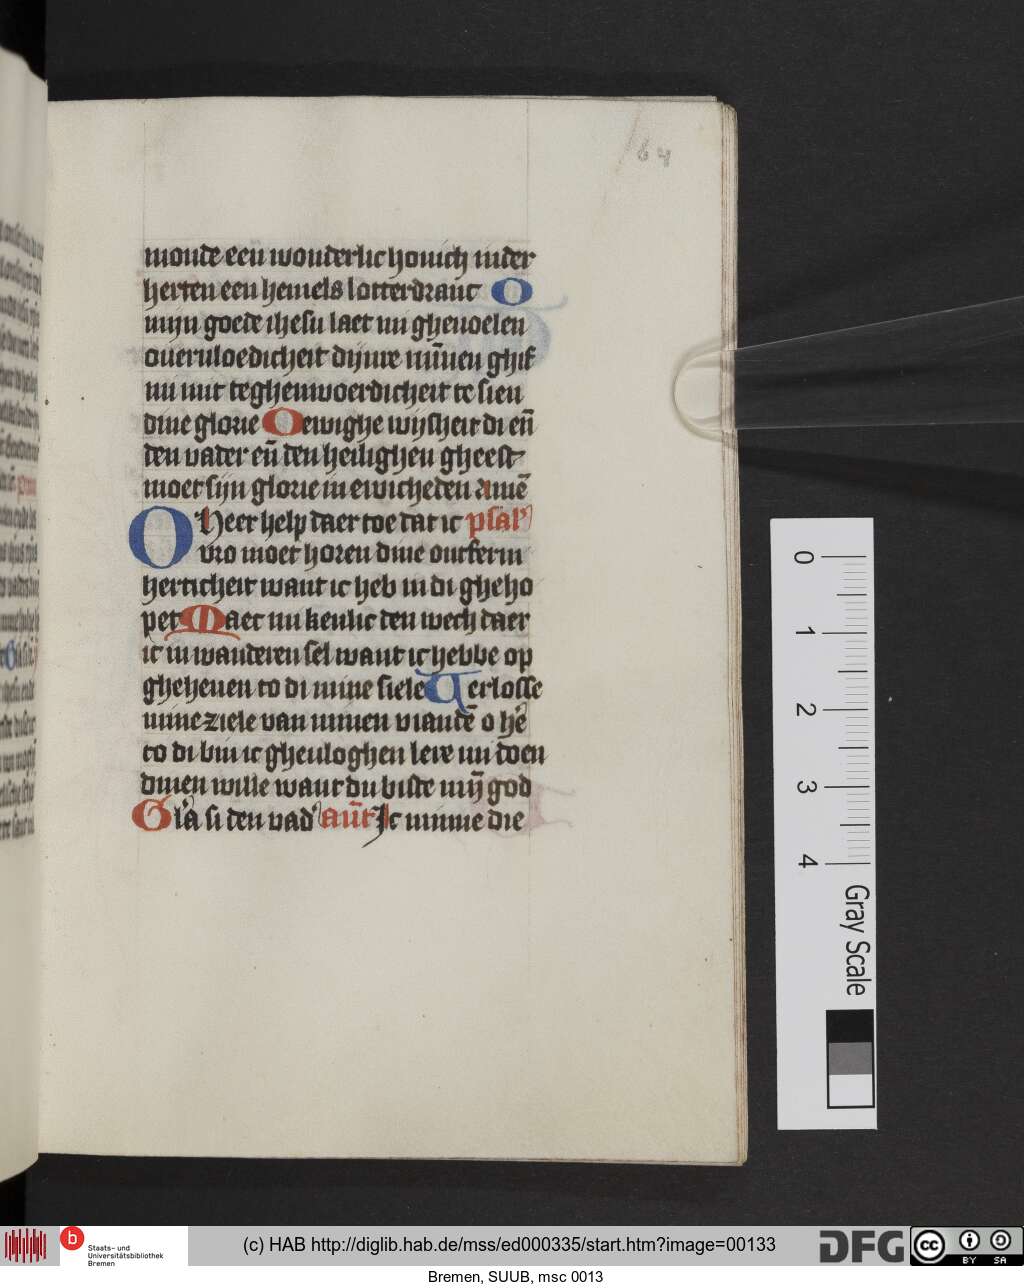 64
monde een wonderlic honich inder
herten een hemels lotterdranc O
mijn goede ihesu laet mi gheuoelen
oueruloedicheit dijnre minnen ghif
mi mit teghenwoerdicheit te sien
dine glorie O ewighe wijsheit di en̄
den vader en̄ den heilighen gheest
moet sijn glorie in ewicheden amē
O Heer help daer toe dat ic psal
vro moet horen dine ontferm
herticheit want ic heb in di gheho
pet Maec mi kenlic den wech daer
ic in wanderen sel want ic hebbe op
gheheuen to di mine siele Verlosse
mine ziele van minen viandē o hē
to di bin ic gheuloghen lere mi doen
dinen wille want du biste mij̄ god
Glā si den vad' an̄t Ic minne die
0
1
2
3
4
Gray Scale
b Staats- und
Universitätsbibliothek
Bremen
(c) HAB http://diglib.hab.de/mss/ed000335/start.htm?image=00133
DFG
cc BY SA
Bremen, SUUB, msc 0013